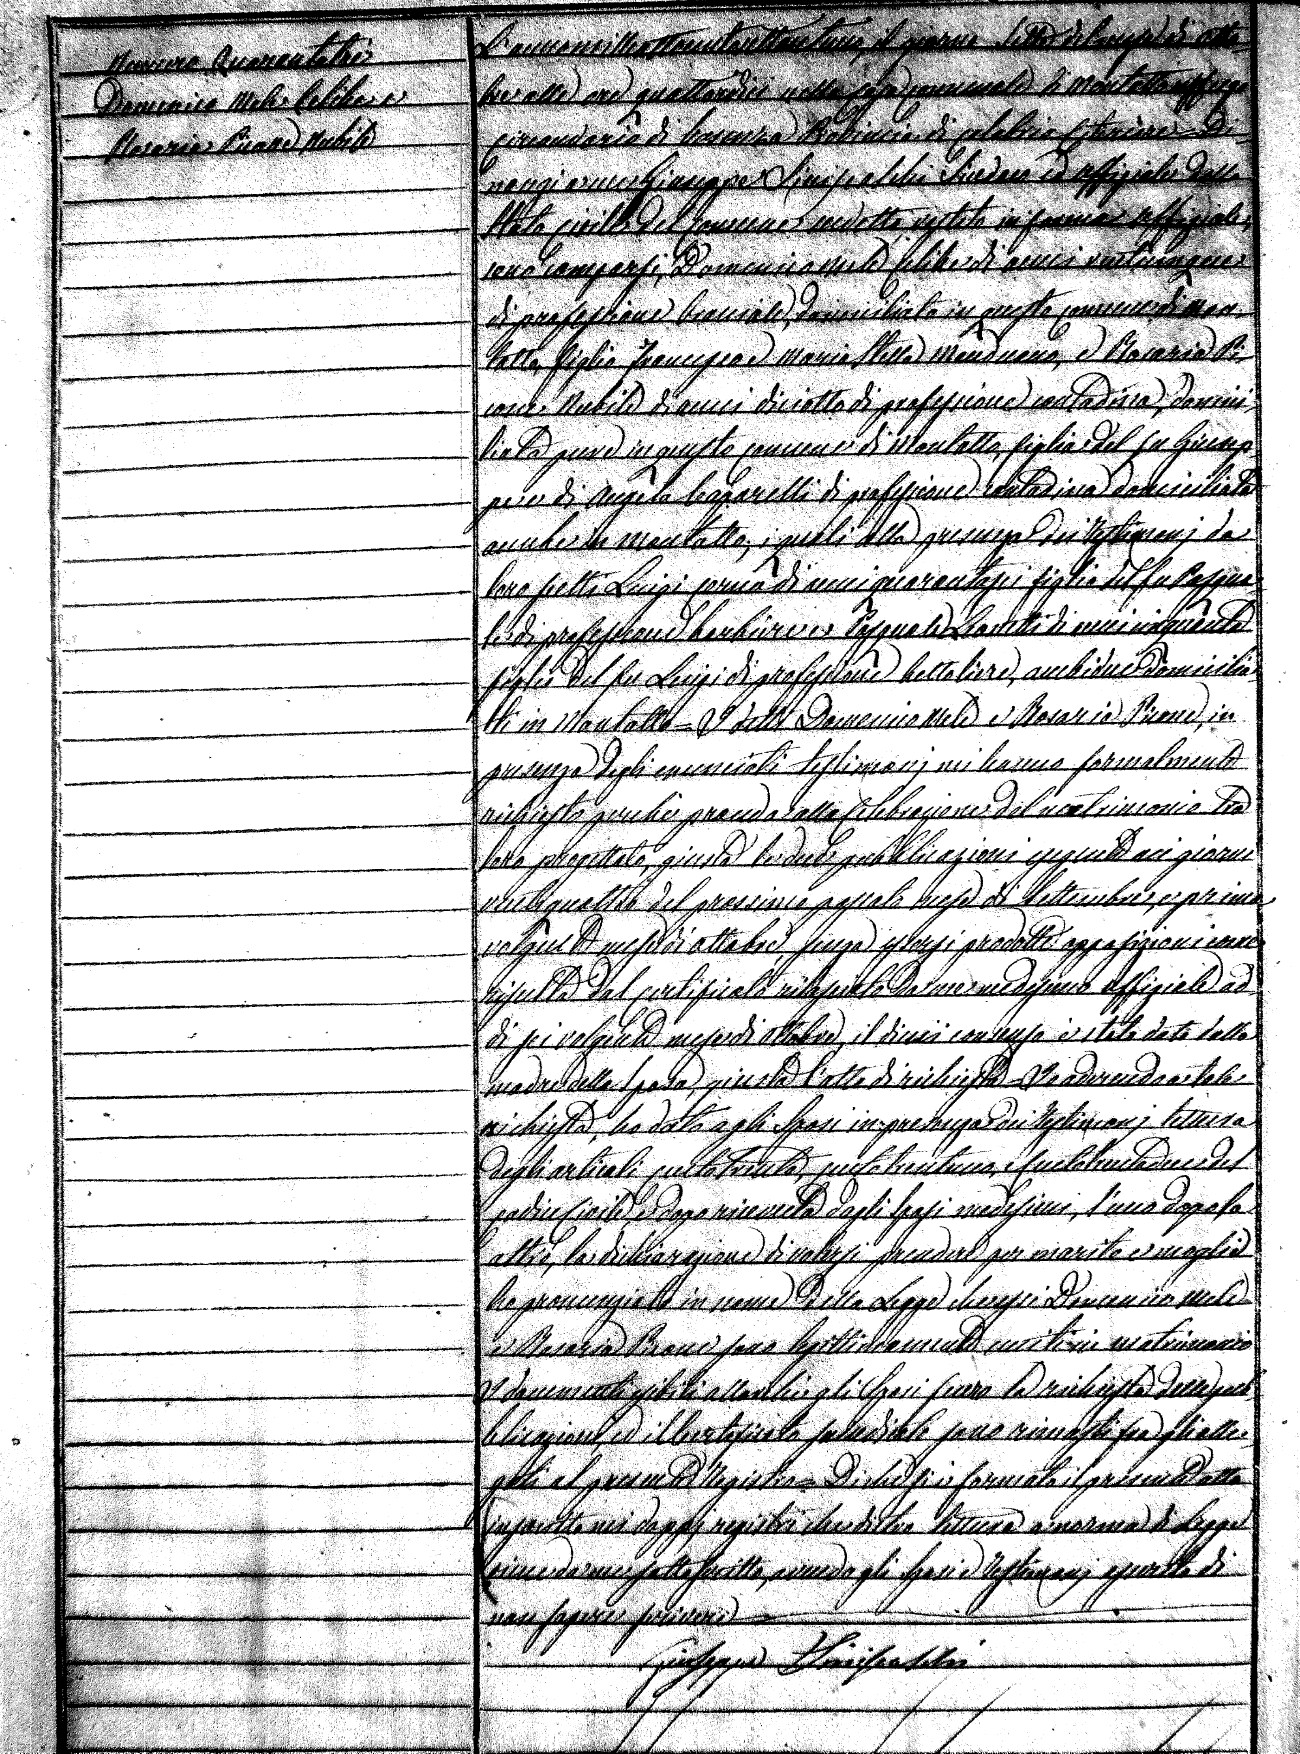 Numero Quarantatrè
Domenico Mele Celibe e
Rosaria Pirone Nubile
L'anno mille ottocento settantuno, il giorno sette del mese di otto-
bre alle ore quattordici nella casa comunale di Montalto Uffugo
circondario di Cosenza Provincia di Calabria Citeriore = Di
nanzi a me Giuseppe Siniscalchi Sindaco ed uffiziale dello
Stato Civile del Comune suddetto vestito in forma uffiziale,
sono comparsi, Domenico Mele celibe di anni venticinque
di professione bracciale, domiciliato in questo comune di Mon
talto, figlio Francesco e Maria Stella Manduano, e Rosaria Pi
rone Nubile di anni diciotto di professione contadina, domici
liata pure in questo comune di Montalto, figlia del fu Giusep
pe e di Angela Caparelli di professione contadina domiciliata
anche in Montalto, i quali alla presenza dei testimonj da
loro scelti Luigi di anni quarantasei figlio del fu Pasqua
le di professione barbiere e Pasquale di anni cinquanta
figlio del fu Luigi di professione bettoliere, ambidue domicilia
ti in Montalto = I detti Domenico Mele e Rosaria Pirone, in
presenza degli enunciati testimonj mi hanno formalmente
richiesto perchè proceda alla celebrazione del matrimonio tra
loro progettato, giusta le due pubblicazioni eseguite nei giorni
ventiquattro del prossimo passato mese di Settembre, e primo
volgente mese di ottobre, senza essersi prodotte opposizioni come
risulta dal certificato rilasciato da me medesimo uffiziale ad
di sei volgente mese di ottobre, il di cui consenso è stato dato dalla
madre della sposa, giusta l'atto di richiesta = Io aderendo a tale
richiesta, ho dato agli sposi in presenza dei testimonj lettura
degli articoli centotrenta, centotrentuno, e centotrentadue del
codice Civile, e dopo ricevuta dagli sposi medesimi, l'uno dopo lo
altro, la dichiarazione di volersi prendere per marito e moglie
ho pronunziato in nome della Legge che essi Domenico Mele
e Rosaria Pirone sono legittimamente uniti in matrimonio
I documenti esibiti dagli sposi la richiesta delle pub
blicazioni, ed il certificato sono rimasti fra gli alle
gati al presente Registro = Di che si è formato il presente atto
inscritto nei doppj registri che dietro lettura a norma di Legge
viene da me sottoscritto, avendo gli sposi e testimonj asserito di
non sapere scrivere
Giuseppe Siniscalchi